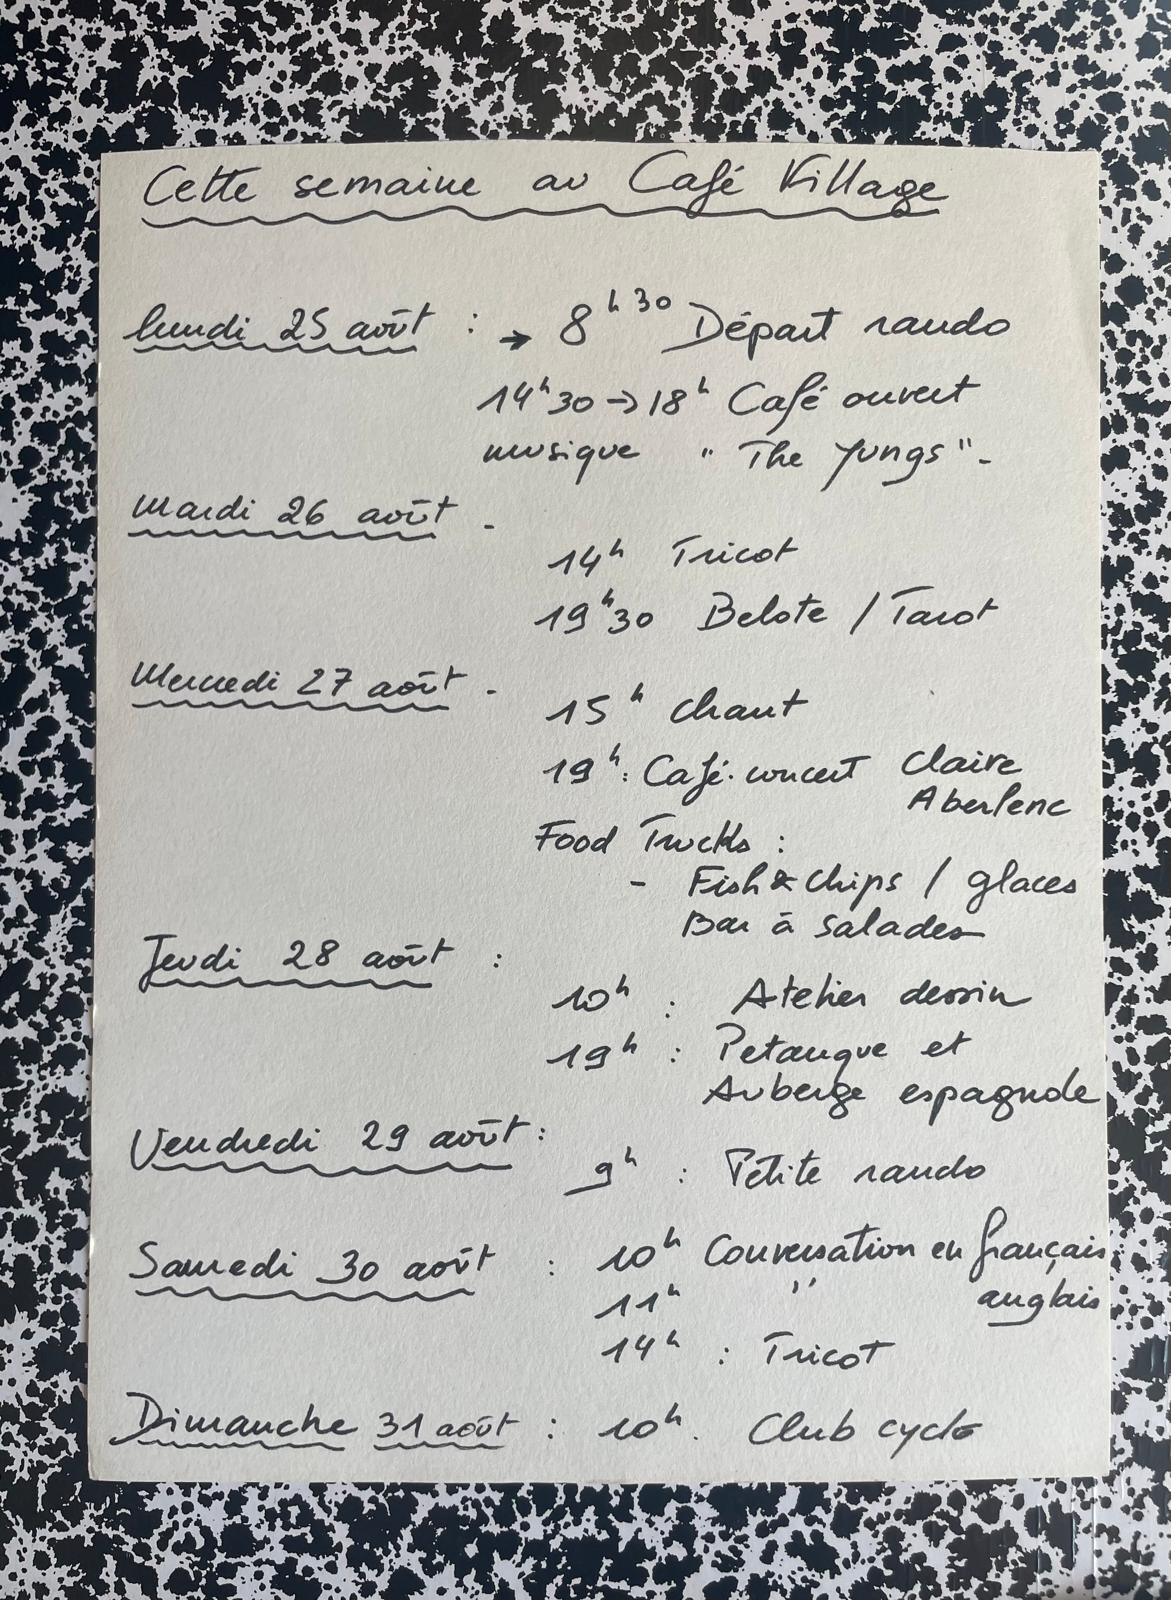 Cette semaine au Café Village
lundi 25 août : → 8h30 Départ rando
14h30 → 18h Café ouvert
musique " The Yungs ".
Mardi 26 août -
14h Tricot
19h30 Belote / Tarot
Mercredi 27 août -
15h chant
19h : Café-concert Claire
Aberlenc
Food Trucks :
- Fish & chips / glaces
Bar à salades
Jeudi 28 août :
10h : Atelier dessin
19h : Petanque et
Auberge espagnole
Vendredi 29 août :
9h : Petite rando
Samedi 30 août : 10h Conversation en français
11h " anglais
14h : Tricot
Dimanche 31 août : 10h. Club cyclo